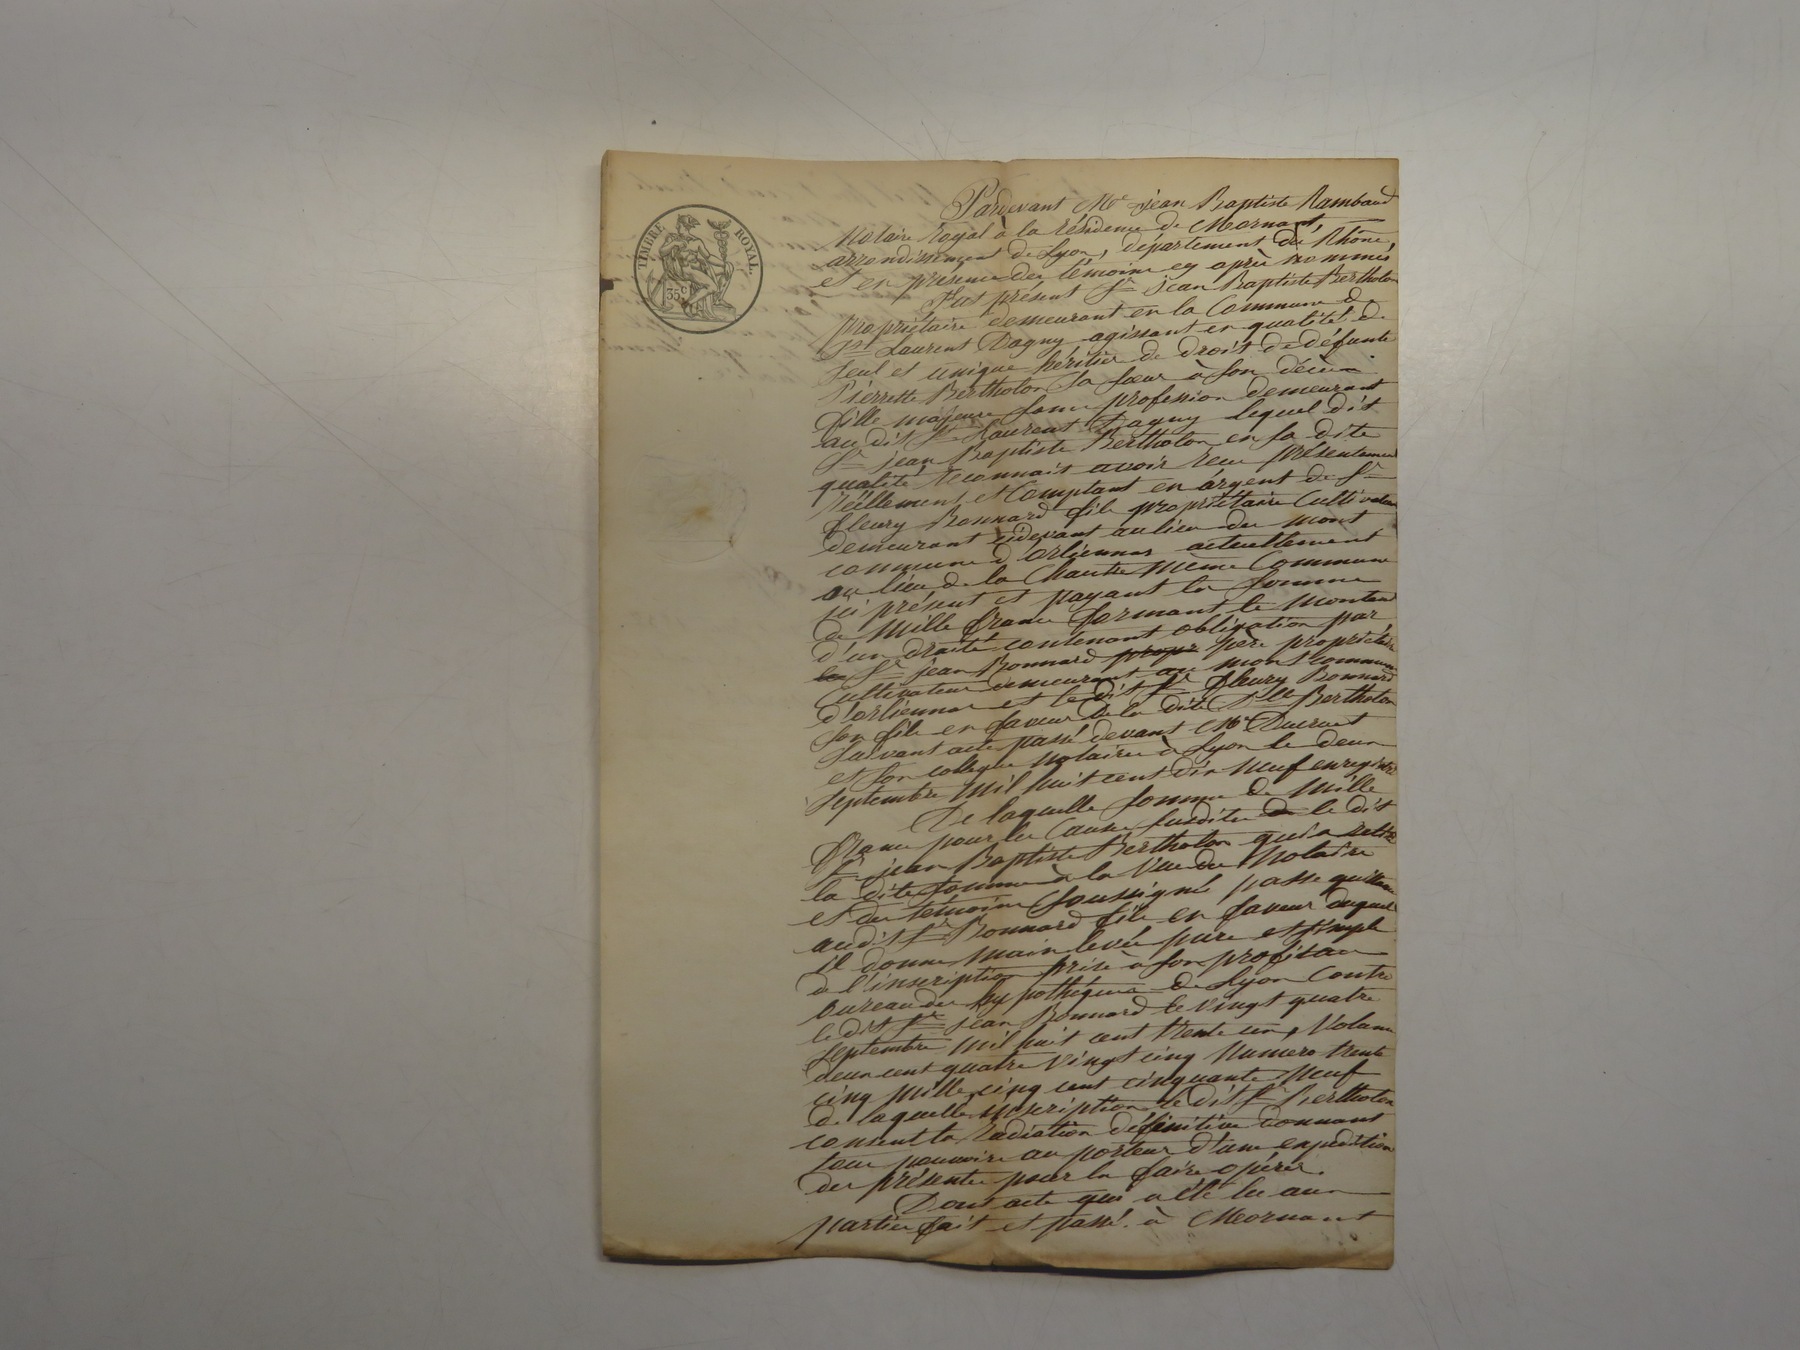 TIMBRE ROYAL.
35 c
Pardevant Me Jean Baptiste Rambaud
Notaire Royal à la résidence de Mornant,
arrondissement de Lyon, département du Rhône,
et en présence des témoins cy après nommés
Fut présent Sr jean Baptiste Bertholon
propriétaire demeurant en la Commune de
St Laurent Dagny agissant en qualité de
seul et unique héritier de droit de défunte
Pierrette Bertholon sa sœur à son décès
fille majeure sans profession demeurant
au dit St Laurent Dagny lequel dit
Sr jean Baptiste Bertholon en sa dite
qualité reconnait avoir reçu présentement
réellement et Comptant en argent de Sr
fleury Bonnard fils propriétaire Cultivateur
demeurant cidevant au lieu du mont
commune d'orliennas actuellement
au lieu de la Chautre même Commune
ici présent et payant la somme
de Mille francs formant le montant
d'un traité contenant obligation par
les Sr jean Bonnard propr père propriétaire
Cultivateur demeurant au mont commune
d'orliennas et le dit Sr fleury Bonnard
son fils en faveur de la dite Dlle Bertholon
suivant acte passé devant Me Ducruet
et son collegue notaires à Lyon le deux
septembre mil huit cent dix neuf enregistré
De laquelle somme de Mille
francs pour les Causes susdites le dit
Sr jean Baptiste Bertholon qui a retiré
la dite somme à la vue du Notaire
et des témoins soussignés passe quittance
audit Sr Bonnard fils en faveur duquel
il donne main levée pure et simple
de l'inscription prise à son profit au
bureau des hypothèques de Lyon Contre
le dit Sr jean Bonnard le vingt quatre
septembre mil huit cent trente un, Volume
deux cent quatre vingt cinq Numero trente
cinq mille cinq cent cinquante neuf
de laquelle inscription le dit Sr Bertholon
consent la radiation définitive donnant
tous pouvoirs au porteur d'une expédition
des présentes pour la faire opérer.
Dont acte qui a été lu aux
parties fait et passé à Mornant